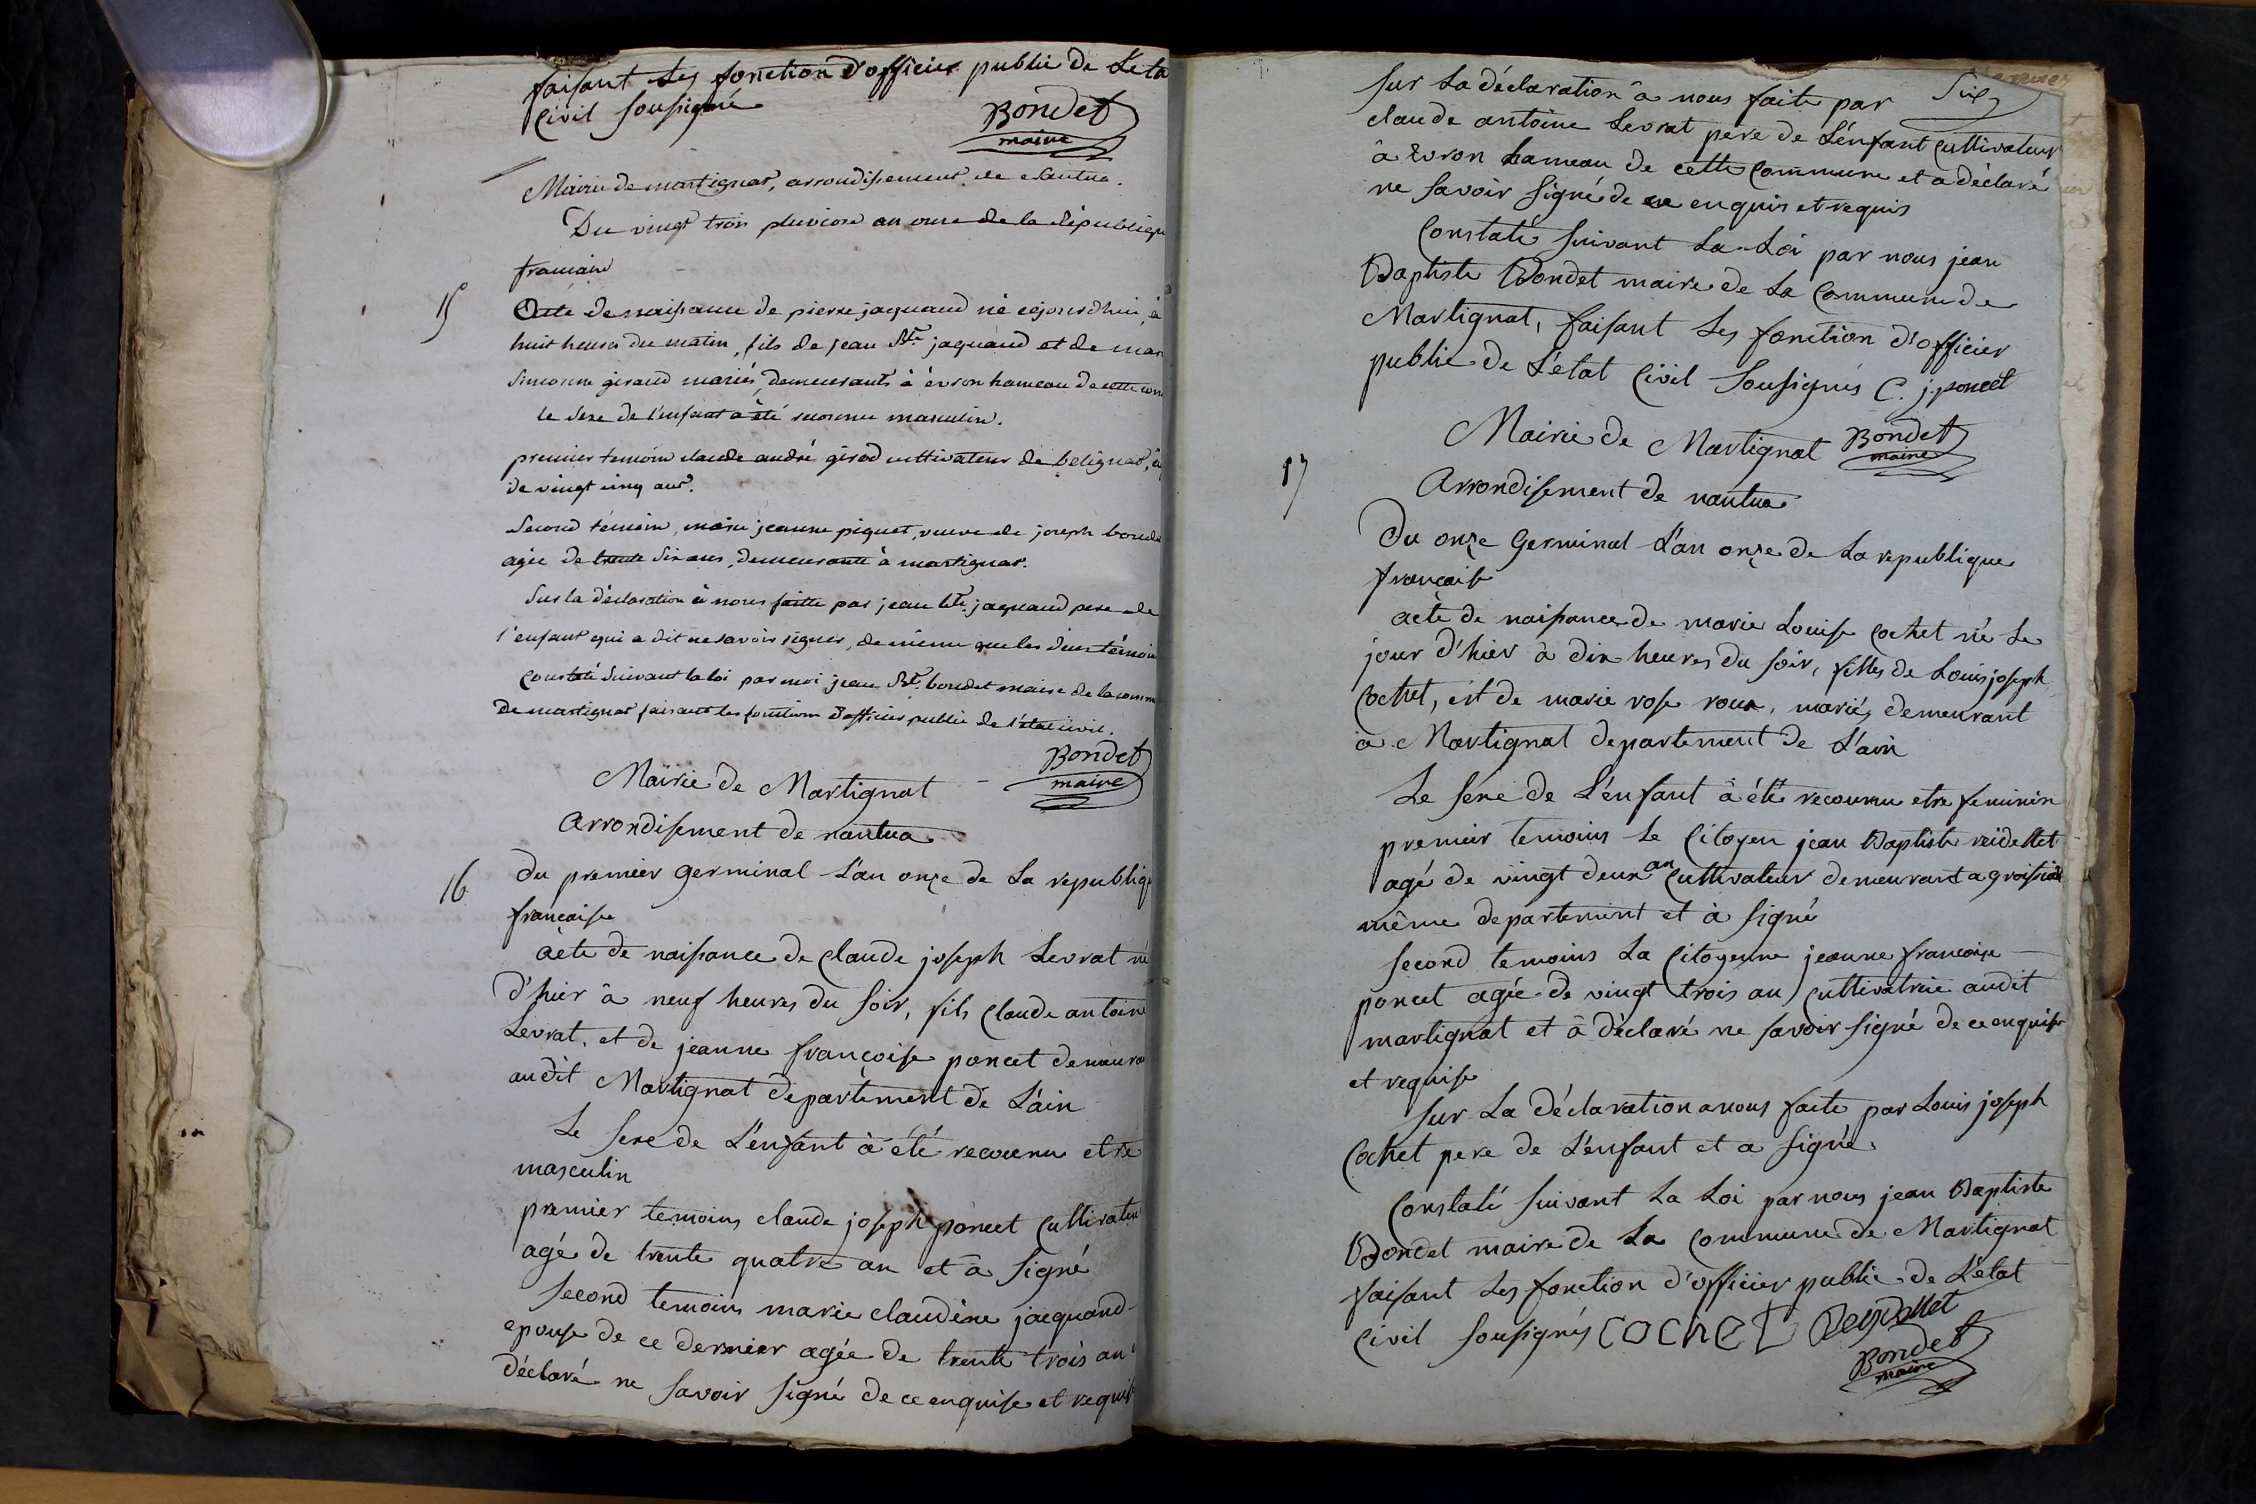 faisant les fonction d'officier public de Léta
Civil sousigné
Bondet
maire
Mairie de martignat, arrondissement de Nantua.
Du vingt trois pluviose an onze de la République
francaise
15
Acte de naissance de pierre jaquand né cejourdhui, à
huit heures du matin, fils de jean Bte jaquand et de mar
Simonne giraud mariés, demeurants à évron hameau de cette com
le sexe de l'enfant a été reconnu masculin.
premier temoin claude andré girod cultivateur de beligna
de vingt cinq ans.
Second témoin, marie jeanne piquet, veuve de joseph bonde
agée de trente six ans, demeurante à martignat.
Sur la déclaration à nous faitte par jean Bte jaquand pere de
l'enfant qui a dit ne savoir signer, de même que les deux témoin
Constaté Suivant la loi par moi jean Bte bondet maire de la comm
de martignat faisant les fonctions d'officier public de l'état civil.
Bondet
maire
Mairie de Martignat
Arrondisement de nantua
16
Du premier germinal L'an onze de La republiq
francaise
acte de naissance de Claude joseph Levrat né
d'hier à neuf heures du soir, fils Claude antoine
Levrat, et de jeanne françoise poncet demeura
audit Martignat departement de L'ain
Le sexe de L'énfant à été reconnu etre
masculin
premier temoins claude joseph poncet Cultivateu
agé de trente quatre an et à signé
Second temoins marie claudine jacquand
epouse de ce dernier agée de trente trois an
déclaré ne savoir signé de ce enquise et requise
sur La déclaration à nous faite par
claude antoine Levrat pere de L'énfant Cultivateur
à Evron hameau de cette Commune et a déclaré
ne savoir signé de ce enquis et requis
Constaté suivant La Loi par nous jean
Baptiste Bondet maire de La Commune de
Martignat, faisant Les fonction d'officier
public de L'état Civil sousignés C. j. poncet
Bondet
maire
Mairie de Martignat
17
Arrondisement de nantua
Du onze Germinal L'an onze de La republique
françaíse
acte de naissance de marie Louise Cochet né Le
jour d'hier à dix heures du soir, filles de Louis joseph
Cochet, et de marie rose roux, mariés demeurant
à Martignat departement de L'ain
Le sexe de L'énfant à été reconnu etre feminin
premier temoins Le Citoyen jean Baptiste reidellet
agé de vingt deux an Cultivateur demeurant a groissiat
même departement et à signé
second temoins La Citoyenne jeanne francoise
poncet agée de vingt trois an Cultivatrice audit
martignat et à déclaré ne savoir signé de ce enquise
et requise
sur La déclaration a nous faite par Louis joseph
Cochet pere de L'énfant et a signé
Constaté suivant La Loi par nous jean Baptiste
Bondet maire de La Commune de Martignat
faisant Les fonction d'officier public de L'état
Civil sousignés Cochet Reydellet
Bondet
maire